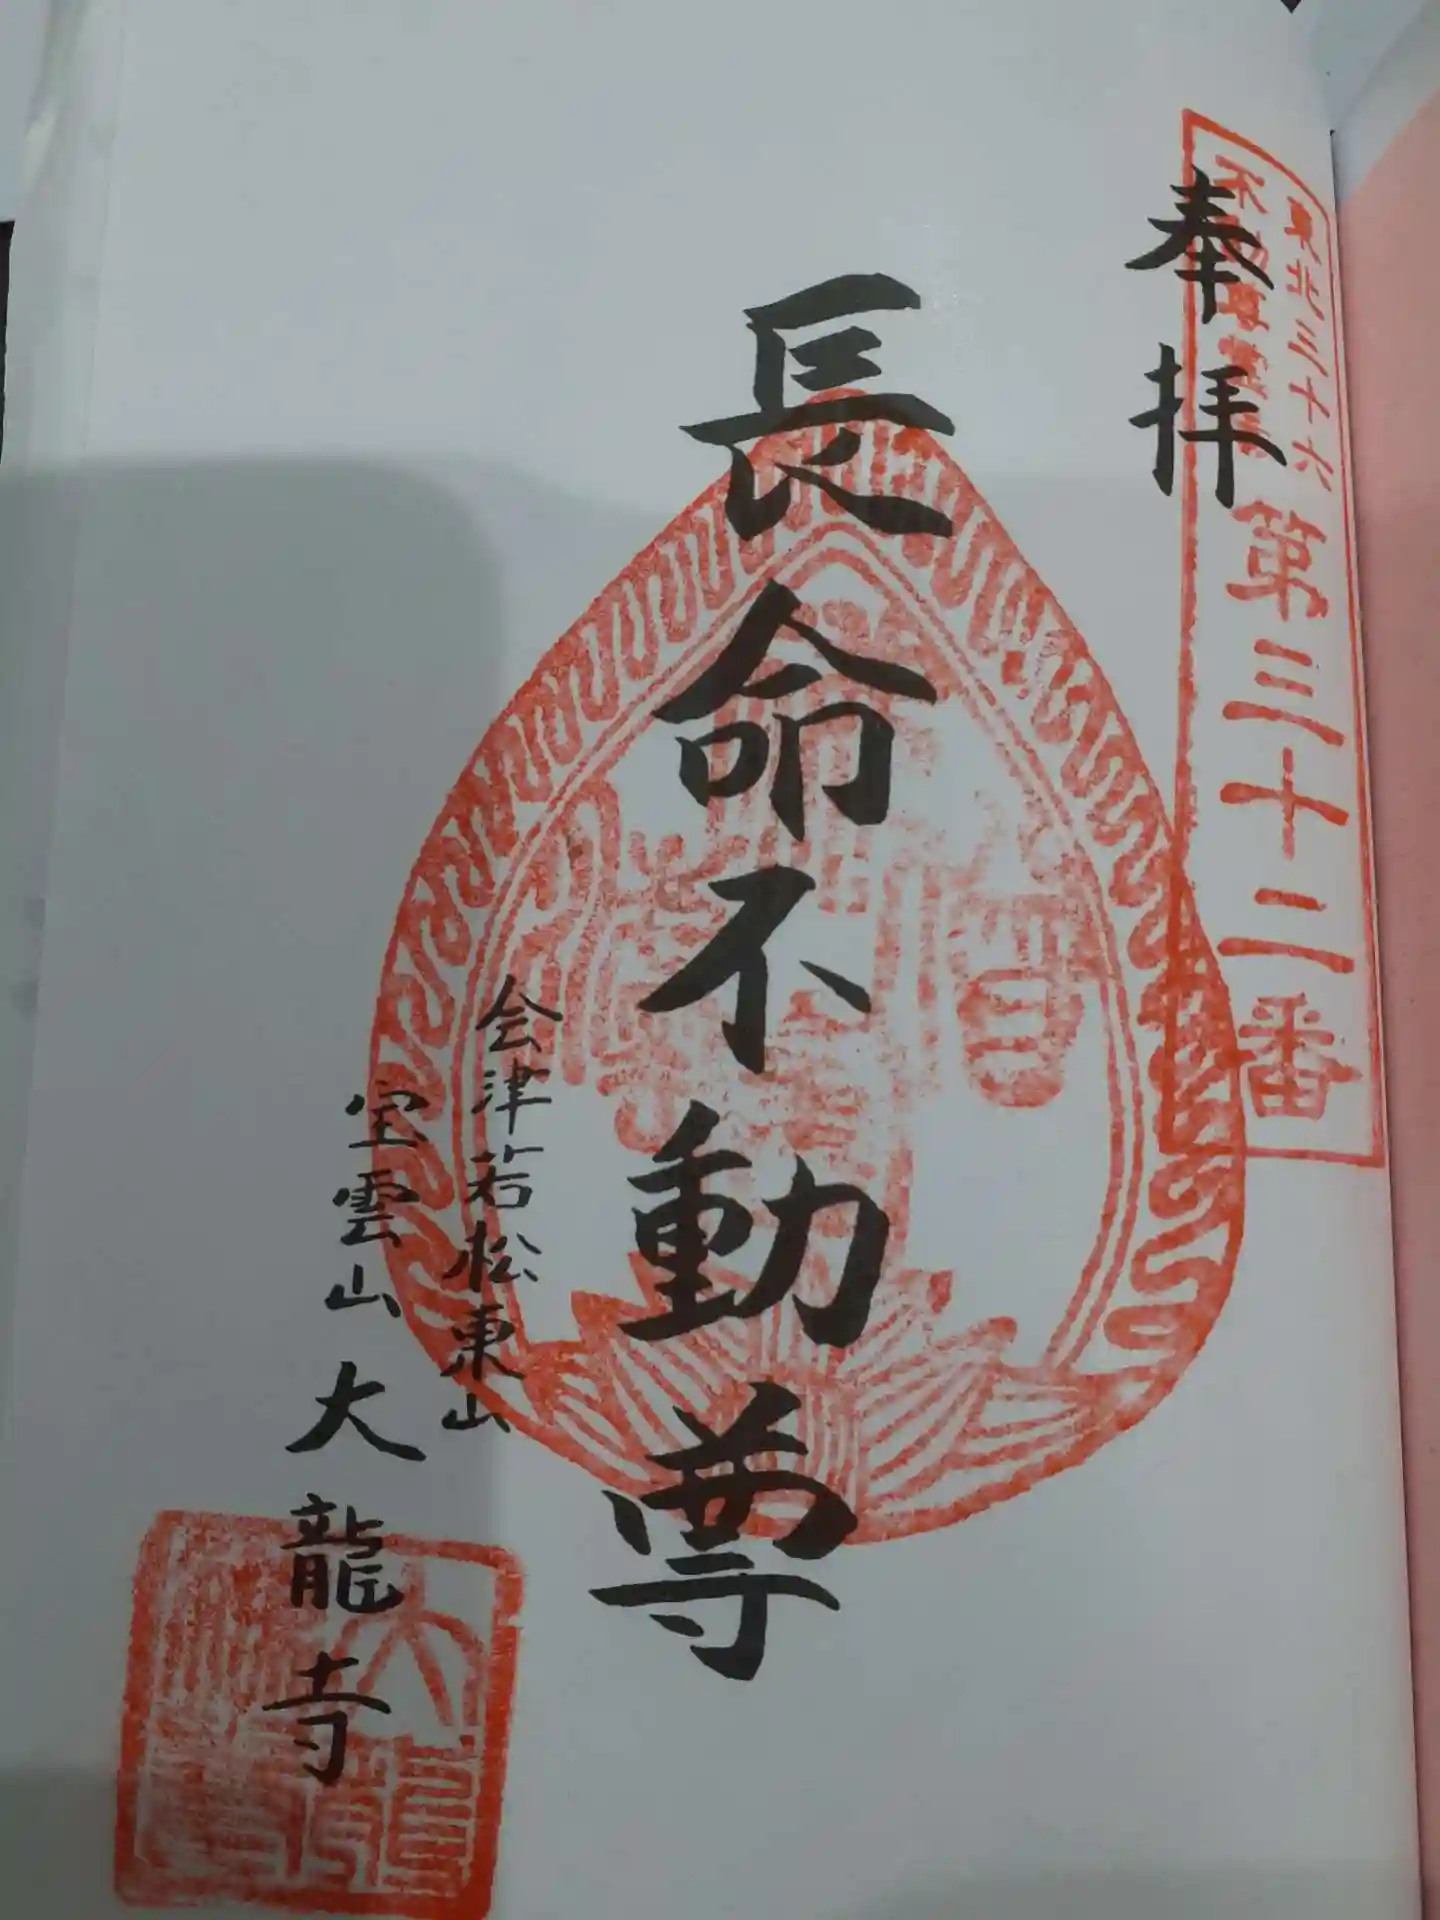 奉拝
東北三十六
不動尊霊場
第三十二番
長命不動尊
会津若松東山
宝雲山大龍寺